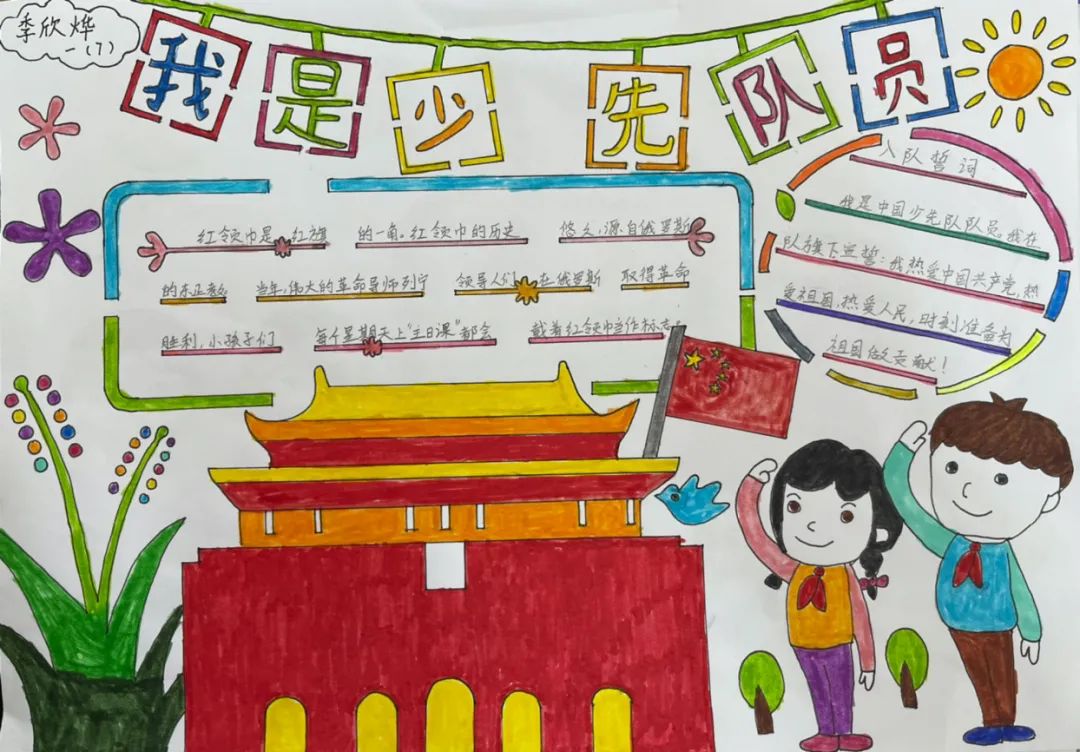 季欣烨
一(7)
我是少先队员
红领巾是 红旗 的一角。红领巾的历史 悠久,源自俄罗斯
的东正教 当年,伟大的革命导师列宁 领导人们 在俄罗斯 取得革命
胜利,小孩子们 每个星期天上“主日课”都会 戴着红领巾当作标志
入队誓词
我是中国少先队队员。我在
队旗下宣誓:我热爱中国共产党,热
爱祖国,热爱人民,时刻准备为
祖国做贡献!